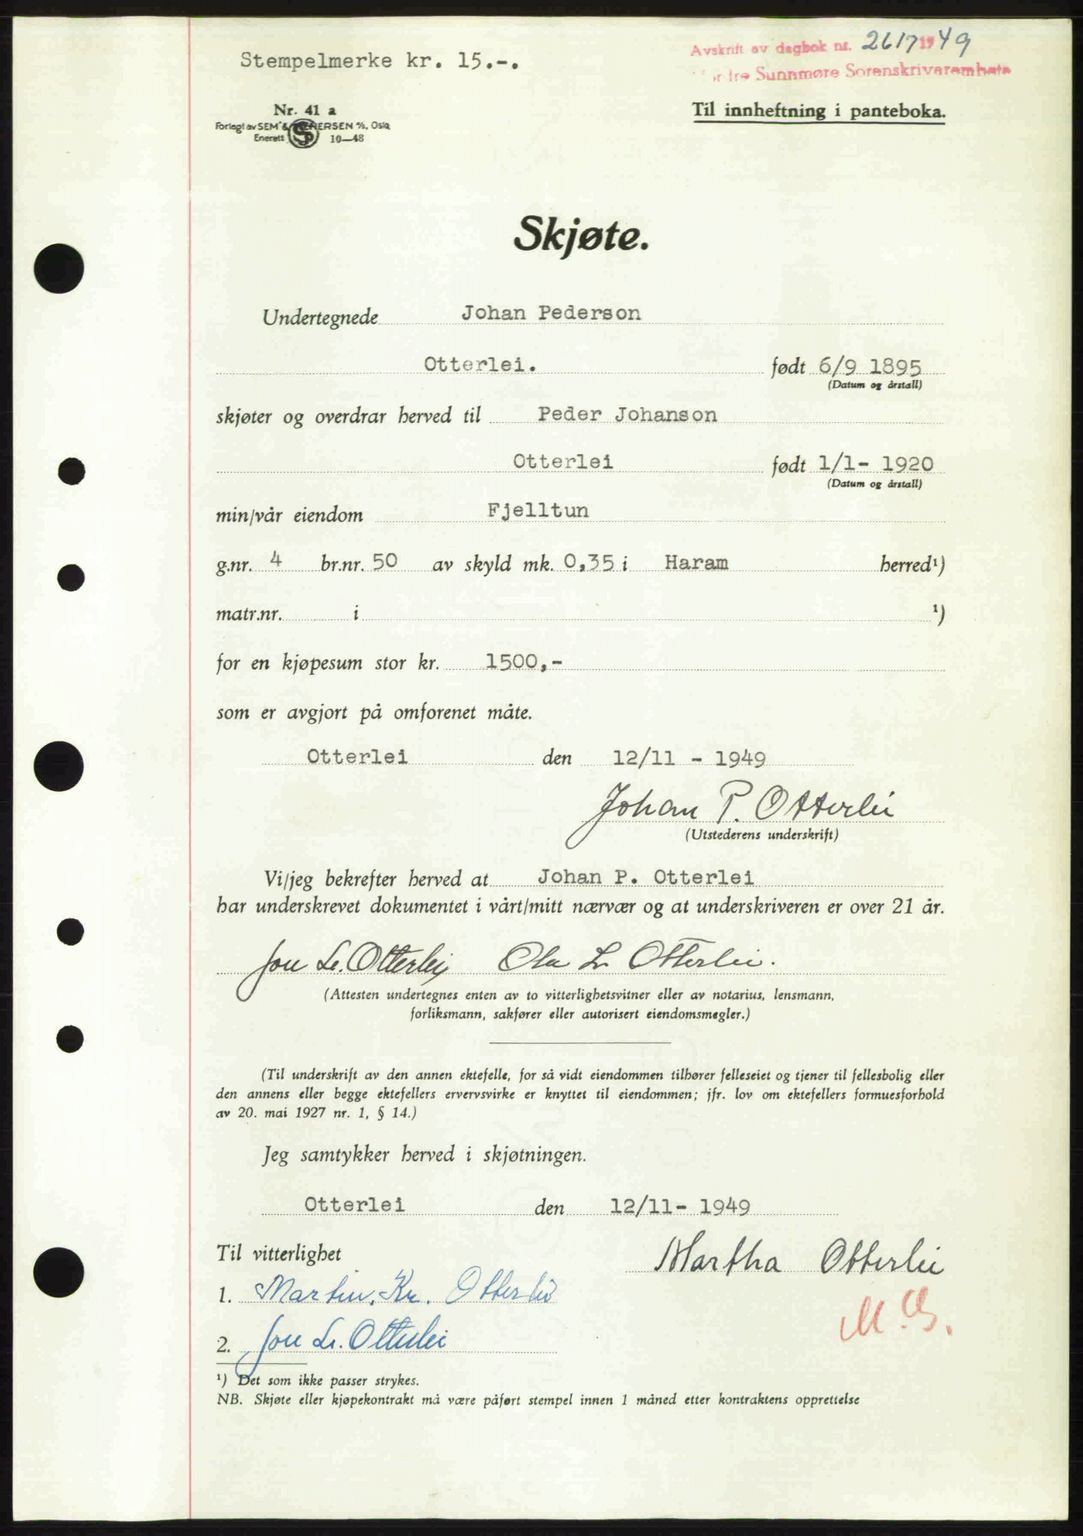 Stempelmerke kr. 15.-.
Avskrift av dagbok nr. 2617 1949
re Sunnmøre Sorenskriverembete
Nr. 41 a
Forlagt av SEM & STENERSEN A/S, Oslo
Enerett 10—48
Til innheftning i panteboka.
Skjøte.
Undertegnede Johan Pederson
Otterlei. født 6/9 1895
(Datum og årstall)
skjøter og overdrar herved til Peder Johanson
Otterlei født 1/1- 1920
(Datum og årstall)
min/vår eiendom Fjelltun
g.nr. 4 br.nr. 50 av skyld mk. 0,35 i Haram herred¹)
matr.nr. i ¹)
for en kjøpesum stor kr. 1500,-
som er avgjort på omforenet måte.
Otterlei den 12/11 - 1949
Johan P. Otterlei
(Utstederens underskrift)
Vi/jeg bekrefter herved at Johan P. Otterlei
har underskrevet dokumentet i vårt/mitt nærvær og at underskriveren er over 21 år.
Jon L. Otterlei Ola L. Otterlei.
(Attesten undertegnes enten av to vitterlighetsvitner eller av notarius, lensmann,
forliksmann, sakfører eller autorisert eiendomsmegler.)
(Til underskrift av den annen ektefelle, for så vidt eiendommen tilhører felleseiet og tjener til fellesbolig eller
den annens eller begge ektefellers ervervsvirke er knyttet til eiendommen; jfr. lov om ektefellers formuesforhold
av 20. mai 1927 nr. 1, § 14.)
Jeg samtykker herved i skjøtningen.
Otterlei den 12/11- 1949
Til vitterlighet
Martha Otterlei
1. Martin. Kr. Otterlei
2. Jon L. Otterlei
¹) Det som ikke passer strykes.
NB. Skjøte eller kjøpekontrakt må være påført stempel innen 1 måned etter kontraktens opprettelse